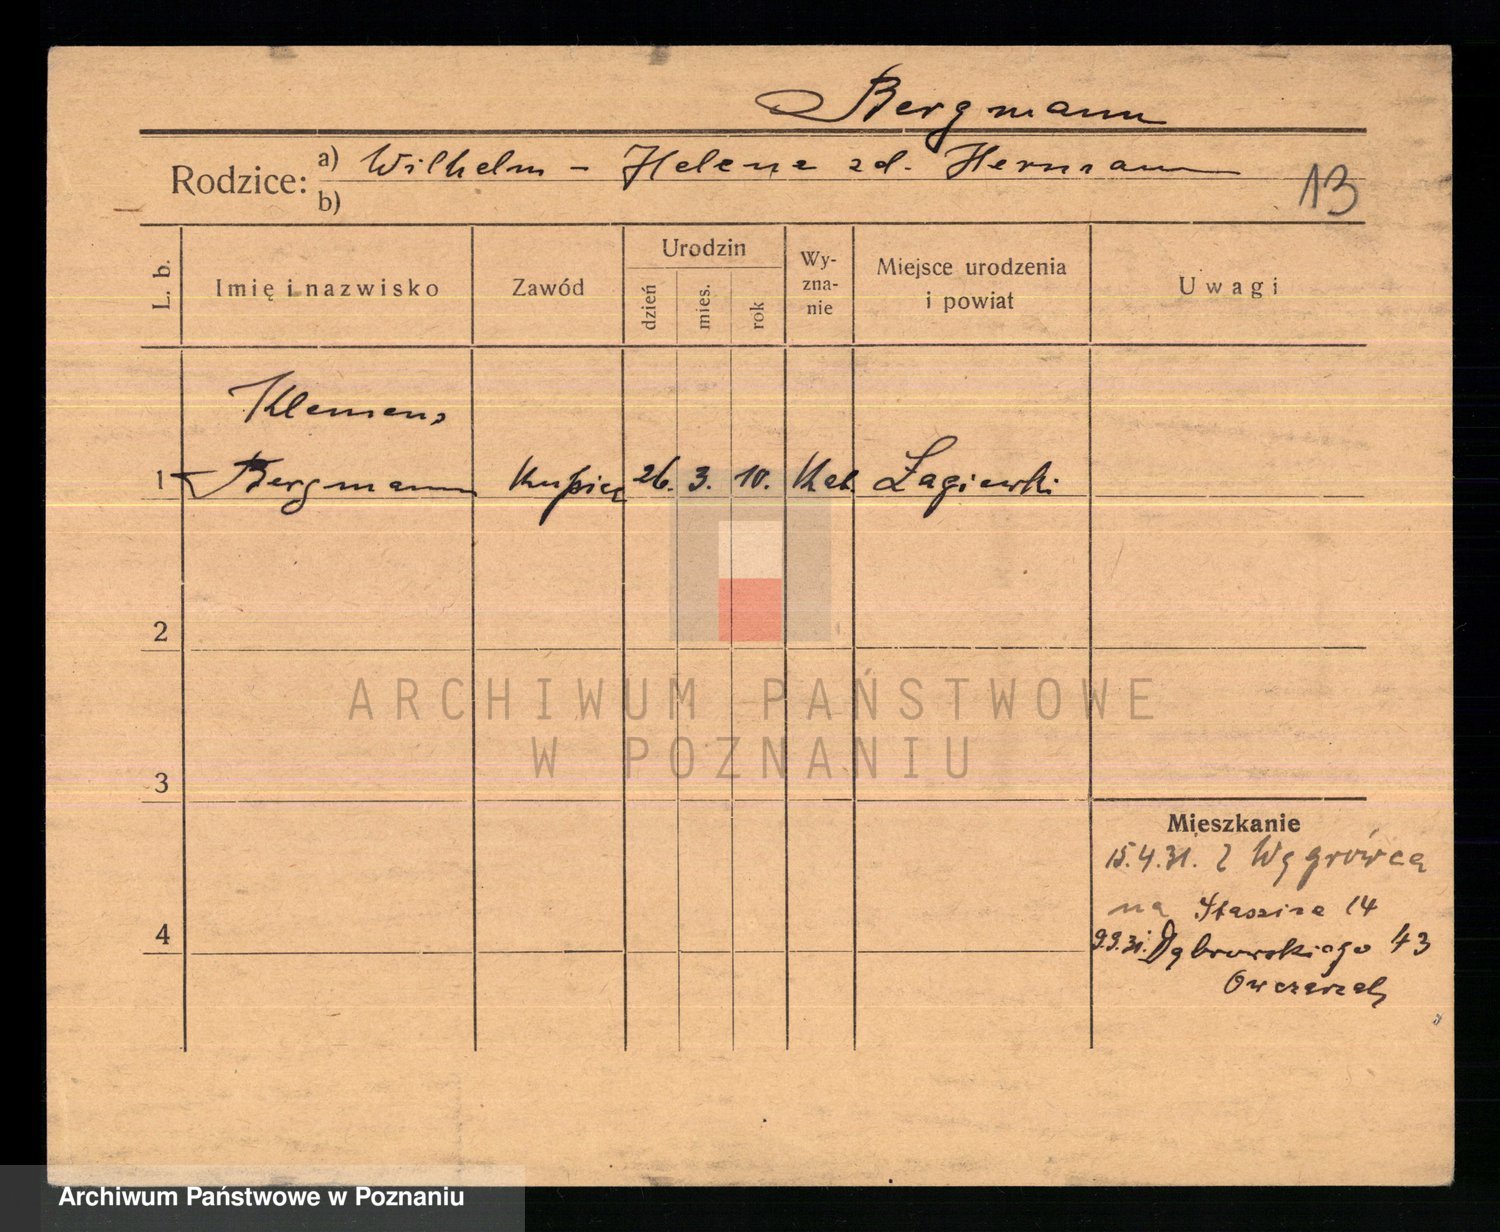 Bergmann
Rodzice: a) Wilhelm - Helene zd. Hermann
b)
13
L. b.
Imię i nazwisko
Zawód
Urodzin
dzień
mies.
rok
Wy-
zna-
nie
Miejsce urodzenia
i powiat
Uwagi
Klemens
1 Bergmann Kupiec 26. 3. 10. Kat. Łagiewki
2
ARCHIWUM PAŃSTWOWE
W POZNANIU
3
Mieszkanie
15.4.31. z Wągrówca
na Staszica 14
4
9.9.31. Dąbrowskiego 43
Owczarzak
Archiwum Państwowe w Poznaniu